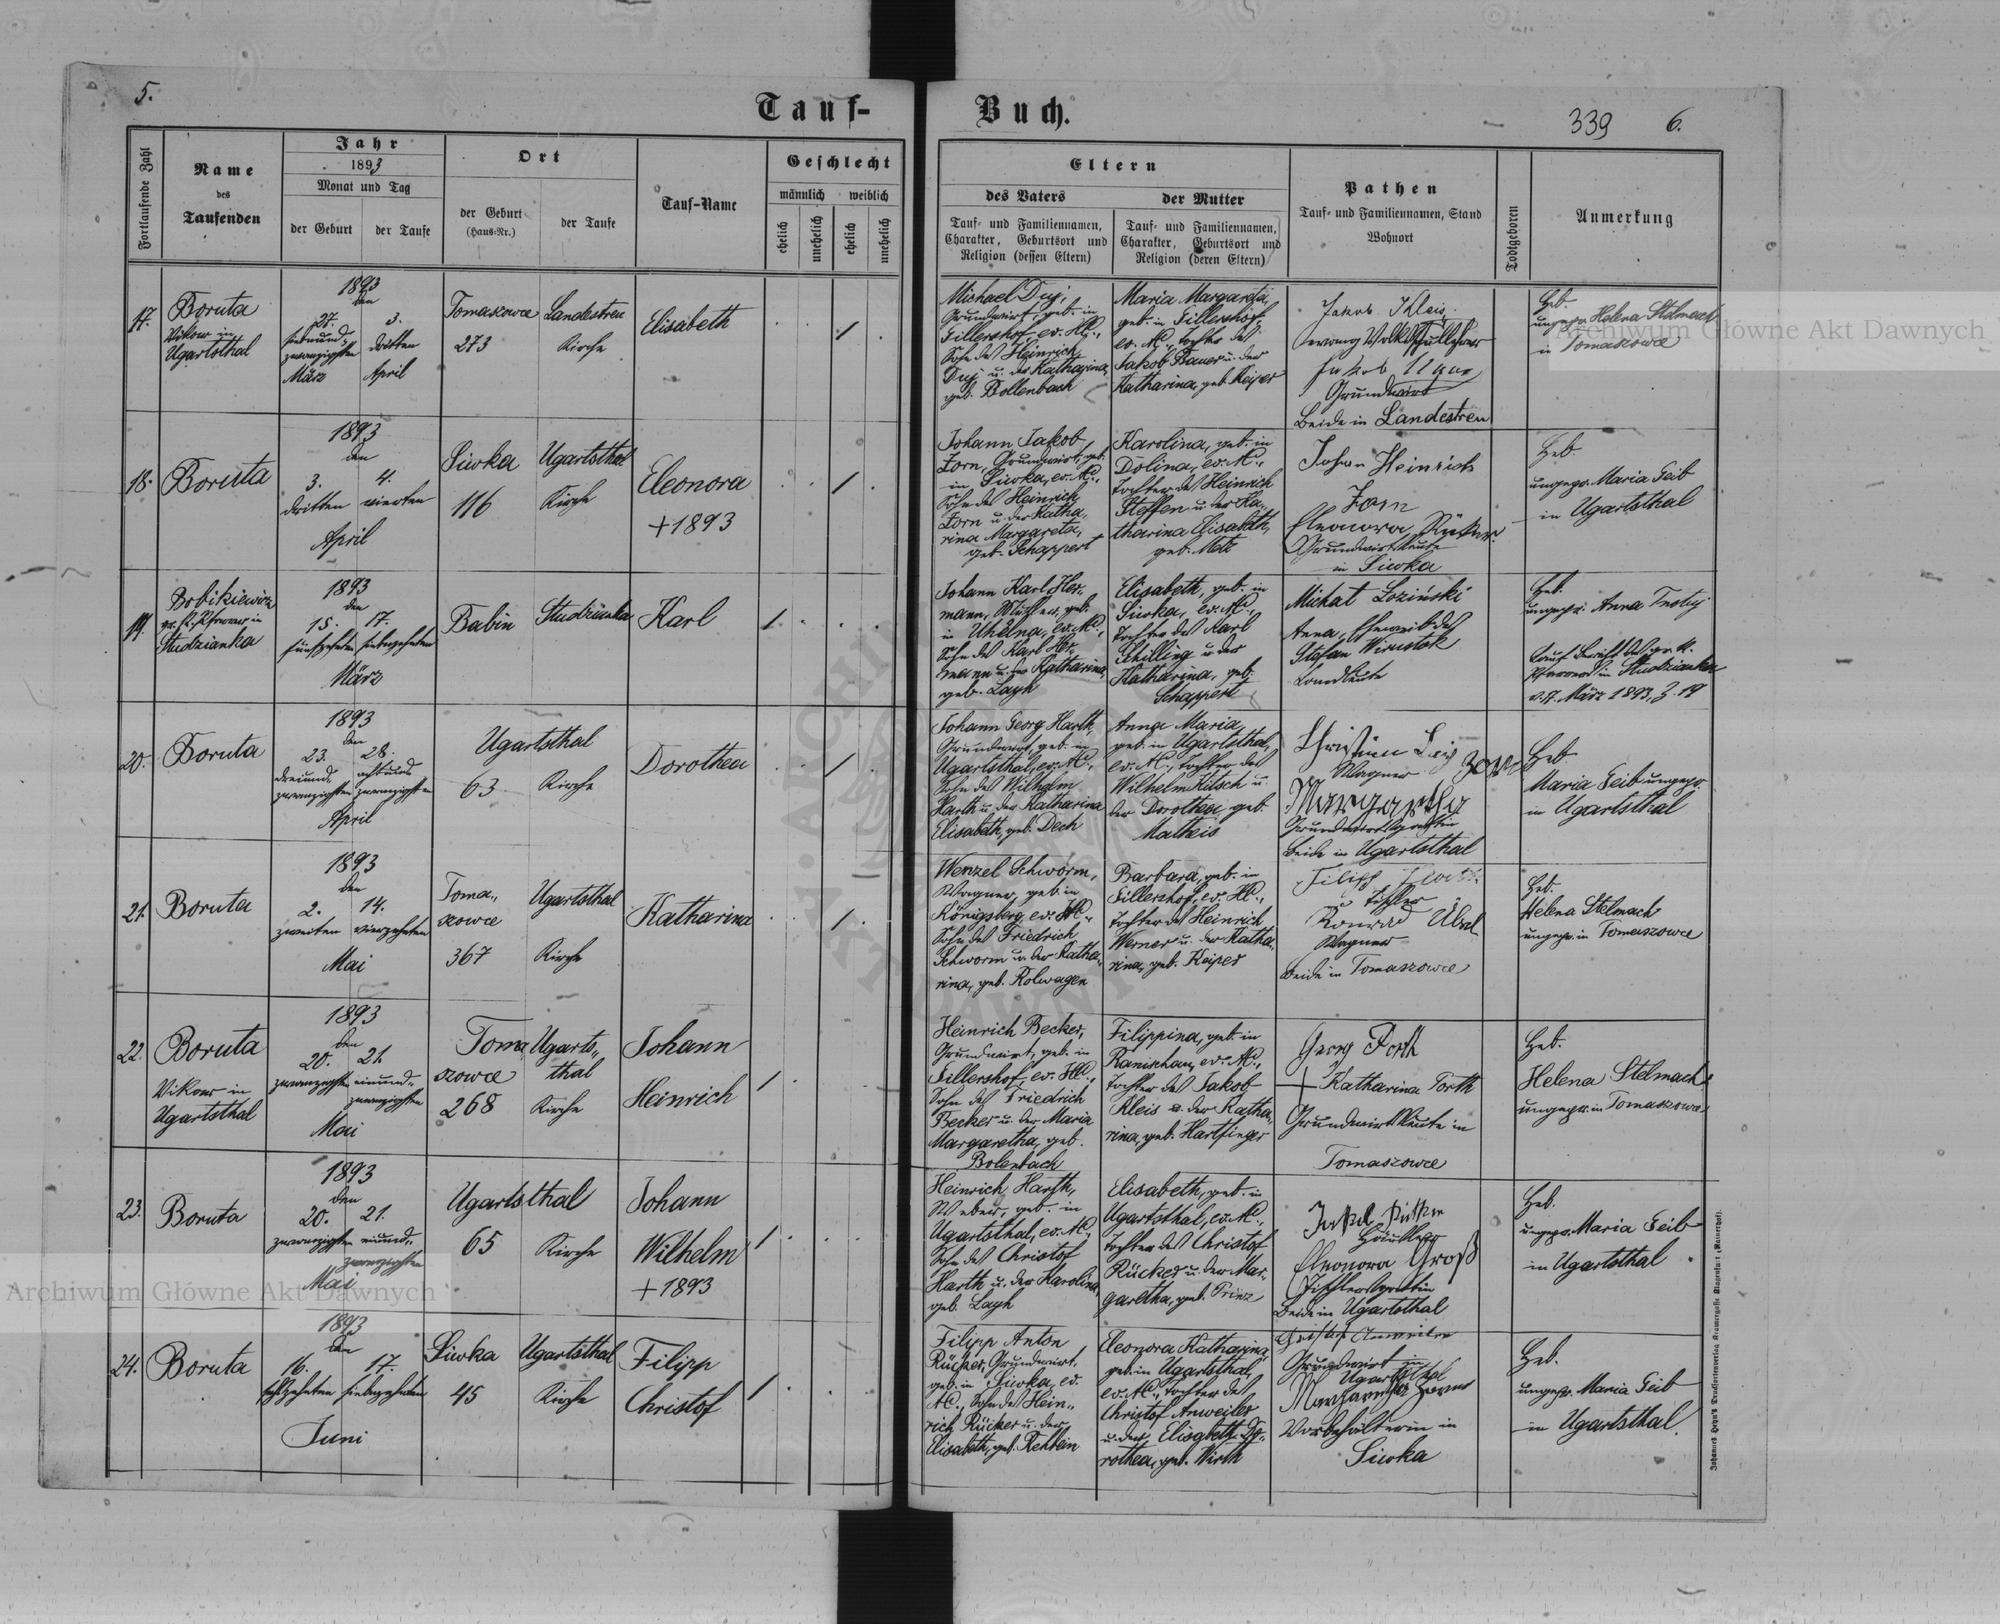 5.
Tauf-
Buch.
339
6.
Fortlaufende Zahl
Name
des
Taufenden
Jahr
1893
Monat und Tag
der Geburt
der Taufe
Ort
der Geburt
(Haus-Nr.)
der Taufe
Tauf-Name
Geschlecht
männlich
weiblich
ehelich
unehelich
ehelich
unehelich
Eltern
des Vaters
Tauf- und Familiennamen,
Charakter, Geburtsort und
Religion (dessen Eltern)
der Mutter
Tauf- und Familiennamen,
Charakter, Geburtsort und
Religion (deren Eltern)
Pathen
Tauf- und Familiennamen, Stand
Wohnort
Todtgeboren
Anmerkung
17.
Boruta
Vikar in
Ugartsthal
1893
den
27.
siebenund-
zwanzigsten
März
3.
dritten
April
Tomaszowce
273
Landestreu
Kirche
Elisabeth
Michael Duy,
Grundwirt, geb. in
Fillershof, ev. HC.,
Sohn des Heinrich
Duy u. der Katharina,
geb. Bollenbach
Maria Margareta,
geb. in Fillershof,
ev. AC., Tochter des
Jakob Bauer u. der
Katharina, geb. Keiper
Jakob Klein
evang Volksschullehrer
Jakob
Grundwirt
Beide in Landestreu
Heb.
ungepr. Helena Stelmach
in Tomaszowce
18.
Boruta
1893
den
3.
dritten
4.
vierten
April
Siwka
116
Ugartsthal
Kirche
Eleonora
+1893
Johann Jakob
Zorn, Grundwirt, geb.
in Siwka, ev. AC.,
Sohn des Heinrich
Zorn u. der Katha-
rina Margareta,
geb. Schappert
Karolina, geb. in
Dolina, ev. AC.,
Tochter des Heinrich
Steffen u. der Ka-
tharina Elisabeth,
geb. Metz
Johan Heinrich
Zorn
Eleonora Rücker
Grundwirtsleute
in Siwka
Heb.
ungepr. Maria Feib
in Ugartsthal
19.
Bobikiewicz
gr. k. Pfarrer in
Studzianka
1893
den
15.
fünfzehnten
17.
siebzehnten
März
Babin
Studzianka
Karl
Johann Karl Her-
mann, Müller, geb.
in Uhelna, ev. AC.,
Sohn des Karl Her-
mann u. der Katharina,
geb. Layh
Elisabeth, geb. in
Siwka, ev. AC.,
Tochter des Karl
Schilling u. der
Katharina, geb.
Schappert
Michał Łoziński
Anna, Eheweib des
Stefan
Landleute
Heb.
ungepr. Anna
Laut Bericht des gr. k.
Pfarrers in Studzianka
v. 17. März 1893, Z. 19
20.
Boruta
1893
den
23.
dreiund-
zwanzigsten
28.
achtund-
zwanzigsten
April
Ugartsthal
63
Kirche
Dorothea
Johann Georg Harth,
Grundwirt, geb. in
Ugartsthal, ev. AC.,
Sohn des Wilhelm
Harth u. der Katharina
Elisabeth, geb. Dech
Anna Maria,
geb. in Ugartsthal,
ev. AC., Tochter des
Wilhelm Kitsch u.
der Dorothea, geb.
Matheis
Christian
Wagner
Margaretha
Grundwirtsgattin
Beide in Ugartsthal
Heb.
Maria Feib ungepr.
in Ugartsthal
21.
Boruta
1893
den
2.
zweiten
14.
vierzehnten
Mai
Toma-
szowce
367
Ugartsthal
Kirche
Katharina
Wenzel Schworm,
Wagner, geb. in
Königsberg, ev. HC.,
Sohn des Friedrich
Schworm u. der Katha-
rina, geb. Kolwagen
Barbara, geb. in
Fillershof, ev. HC.,
Tochter des Heinrich
Werner u. der Katha-
rina, geb. Keiper
Filipp
Tischler
Konrad Übel
Wagner
Beide in Tomaszowce
Heb.
Helena Stelmach
ungepr. in Tomaszowce
22.
Boruta
Vikar in
Ugartsthal
1893
den
20.
zwanzigsten
21.
einund-
zwanzigsten
Mai
Toma
szowce
268
Ugarts-
thal
Kirche
Johann
Heinrich
Heinrich Becker,
Grundwirt, geb. in
Fillershof, ev. HC.,
Sohn des Friedrich
Becker u. der Maria
Margaretha, geb.
Bolenbach
Filippina, geb. in
Ranischau, ev. AC.,
Tochter des Jakob
Kleis u. der Katha-
rina, geb. Hartfinger
Georg Forth
+ Katharina Forth
Grundwirtsleute in
Tomaszowce
Heb.
Helena Stelmach
ungepr. in Tomaszowce
23.
Boruta
1893
den
20.
zwanzigsten
21.
einund-
zwanzigsten
Mai
Ugartsthal
65
Kirche
Johann
Wilhelm
+1893
Heinrich Harth,
Weber, geb. in
Ugartsthal, ev. AC.,
Sohn des Christof
Harth u. der Karolina,
geb. Layh
Elisabeth, geb. in
Ugartsthal, ev. AC.,
Tochter des Christof
Rücker u. der Mar-
garetha, geb. Prinz
Jakob Rücker
Häusler
Eleonora Groß
Tischlersgattin
Beide in Ugartsthal
Heb.
ungepr. Maria Feib
in Ugartsthal
24.
Boruta
1893
den
16.
sechzehnten
17.
siebzehnten
Juni
Siwka
45
Ugartsthal
Kirche
Filipp
Christof
Filipp Anton
Rücker, Grundwirt,
geb. in Siwka, ev.
AC., Sohn des Hein-
rich Rücker u. der
Elisabeth, geb. Rehbein
Eleonora Katharina,
geb. in Ugartsthal,
ev. AC., Tochter des
Christof Anweiler
u. der Elisabeth Do-
rothea, geb. Wirth
Christof Anweiler
Grundwirt in
Ugartsthal
Margaretha
Vorbehälterin in
Siwka
Heb.
ungepr. Maria Feib
in Ugartsthal.
Archiwum Główne Akt Dawnych
Archiwum Główne Akt Dawnych